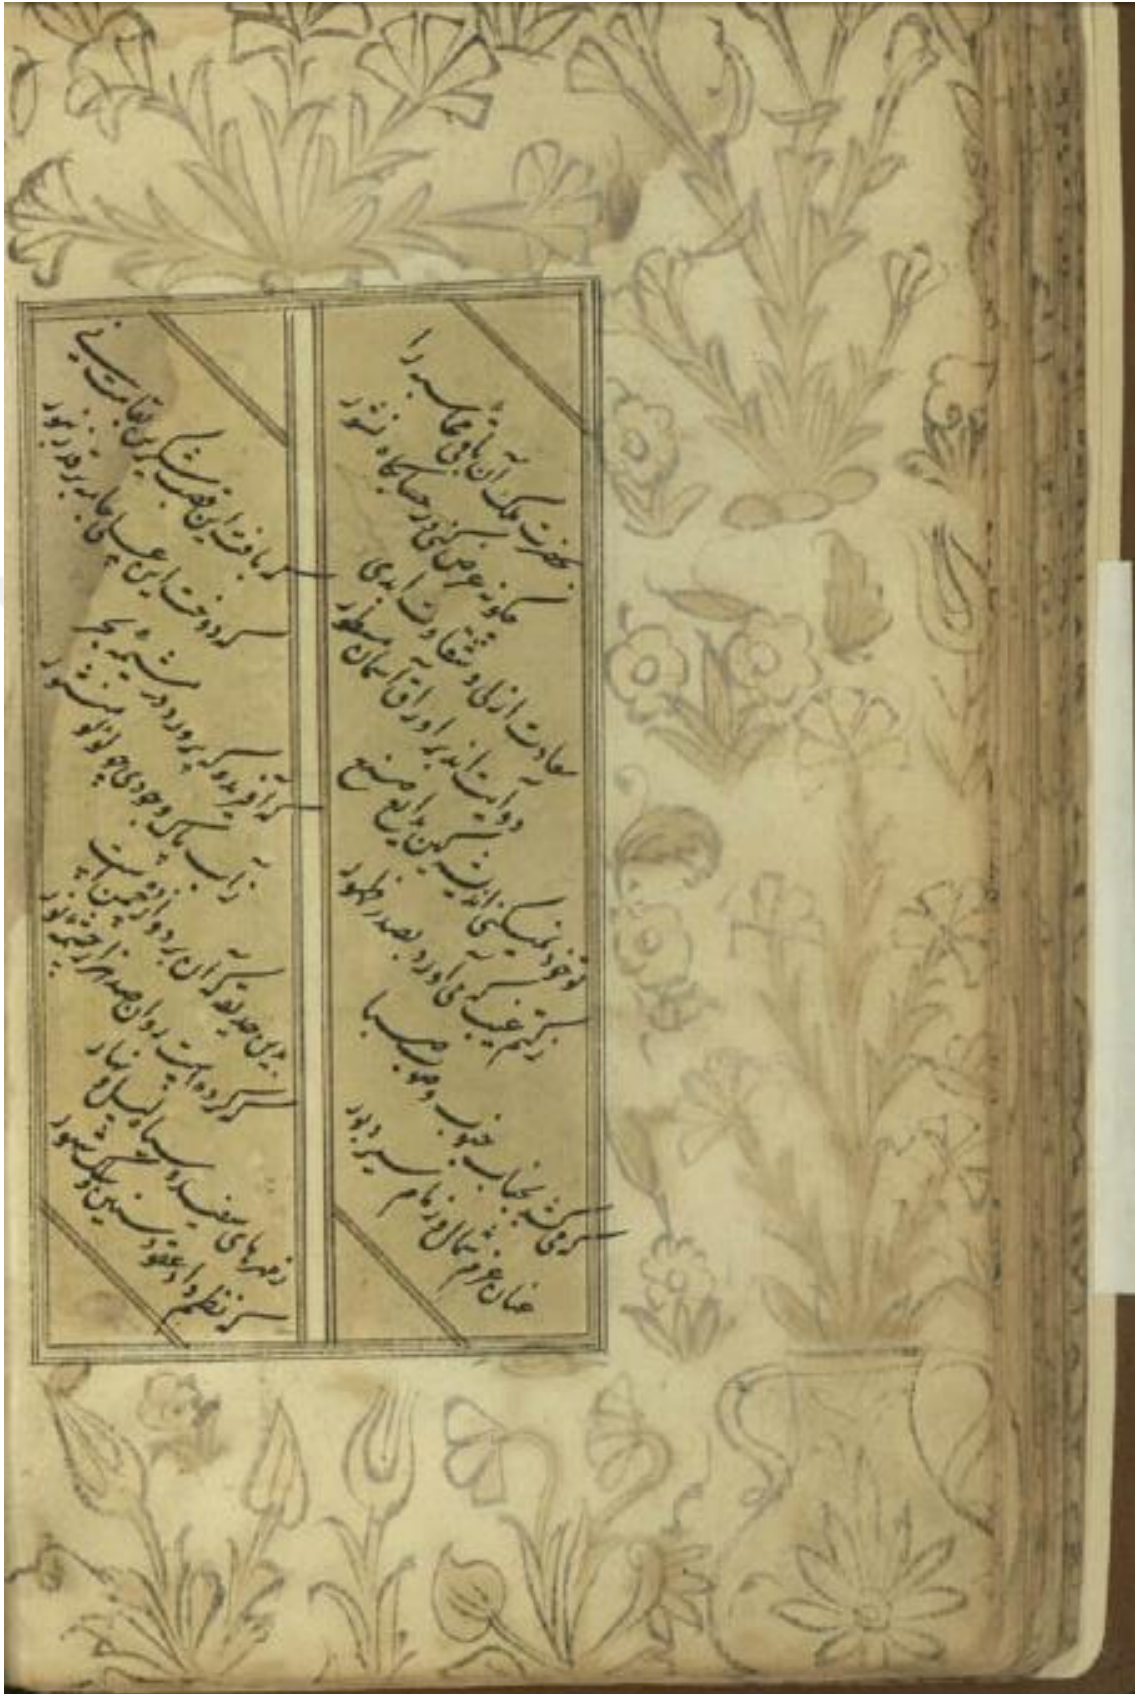 بحضرت ملک آن را
چگونه عرض کنی در حسابگاه نشور
سعادت ازلی و شقاوت ابدی
دو آیت اند بر اوراق آسمان مسطور
تو خود نمیکنی اندیشه کین بدایع صنع
ز کتم غیب که می آورد بصدر ظهور
که میکشد بجناب جنوب و صوب صبا
عنان عزم شمال و زمام سیر دبور
که بافت این قصب شکرین بقامت نی
که دوخت این عسلی جامه بر قد زنبور
که آفرید و که پرورد در مشیمه بحر
ز آب پاک وجودی چو لؤلؤ منثور
حدیقه که آن بر دوازده چمن است
که کرده است روان صد هزار چشمه نور
ز مهرهای سفید و سیاه لیل و نهار
که نظم داد عقود سنین و سلک شهور